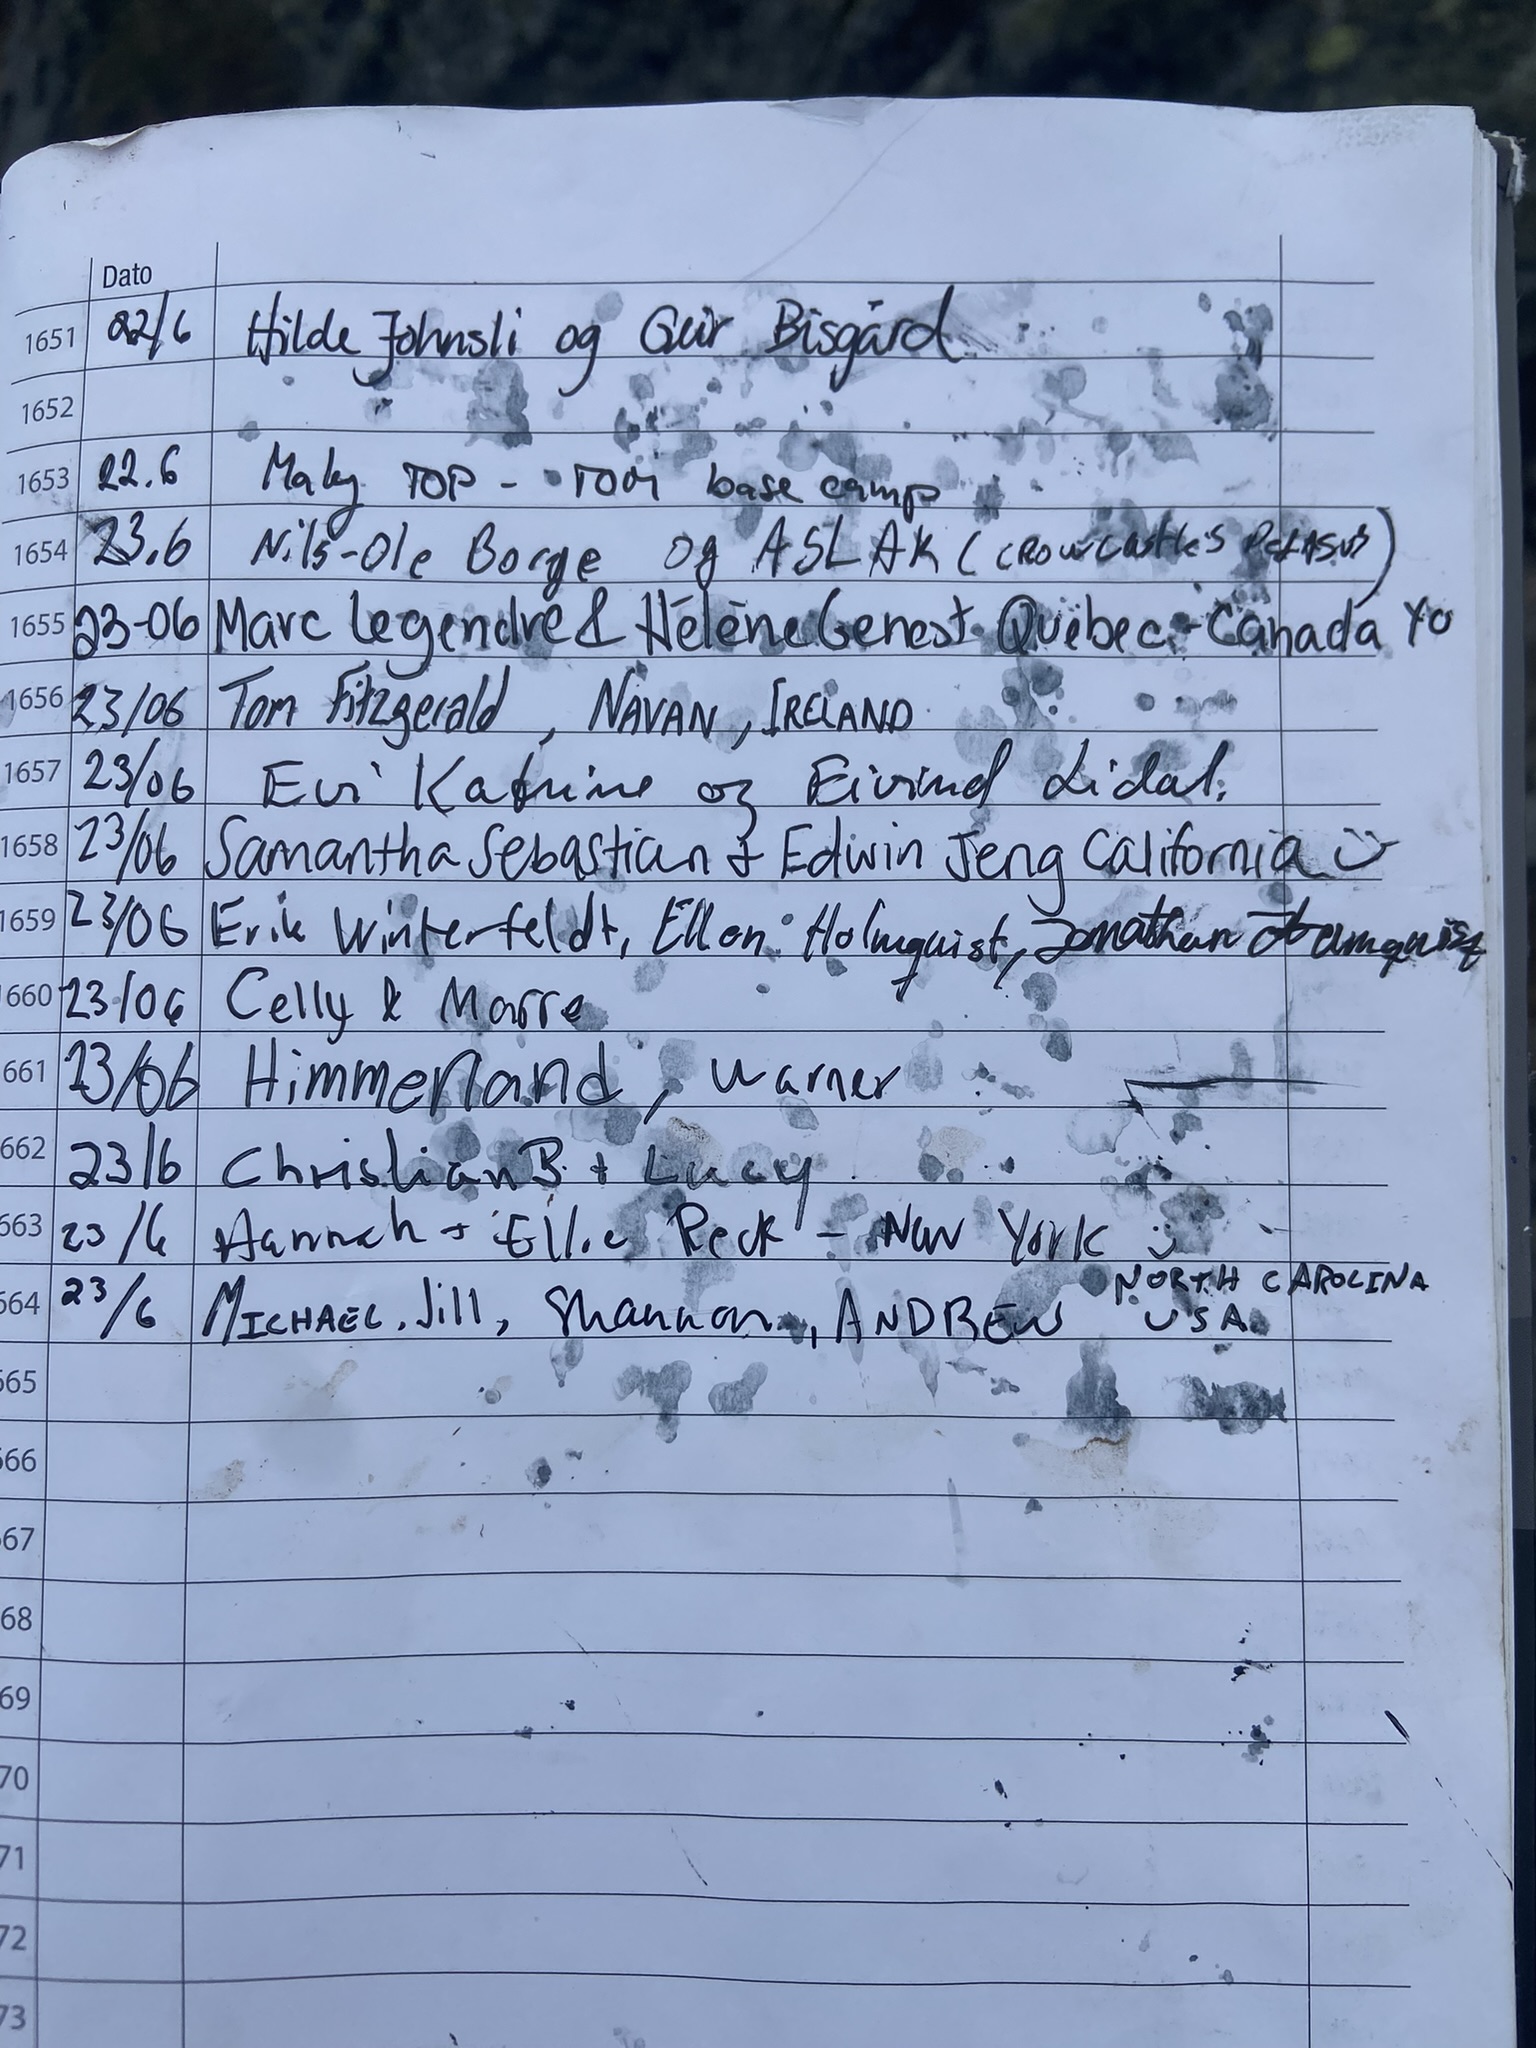 Dato
1651 22/6 Hilde Johnsli og Geir Bisgård
1652
1653 22.6 Maby TOP - TOM base camp
1654 23.6 Nils-Ole Borge og ASLAK (CROWCastle's PeGASUS)
1655 23-06 Marc Legendre & Hélène Genest Québec, Canada YO
1656 23/06 Tom Fitzgerald, NAVAN, IRELAND
1657 23/06 Evi Katrine og Eivind Lidal.
1658 23/06 Samantha Sebastian + Edwin Jeng California :)
1659 23/06 Erik Winterfeldt, Ellen Holmquist, Jonathan
1660 23/06 Celly & Marre
661 23/06 Himmerland, Warner
662 23/6 Christian B. + Lucy
663 23/6 Hannah + Ellie Peck - New York :)
664 23/6 MICHAEL, Jill, Shannon, ANDREW NORTH CAROLINA
USA
665
666
67
68
69
70
71
72
73